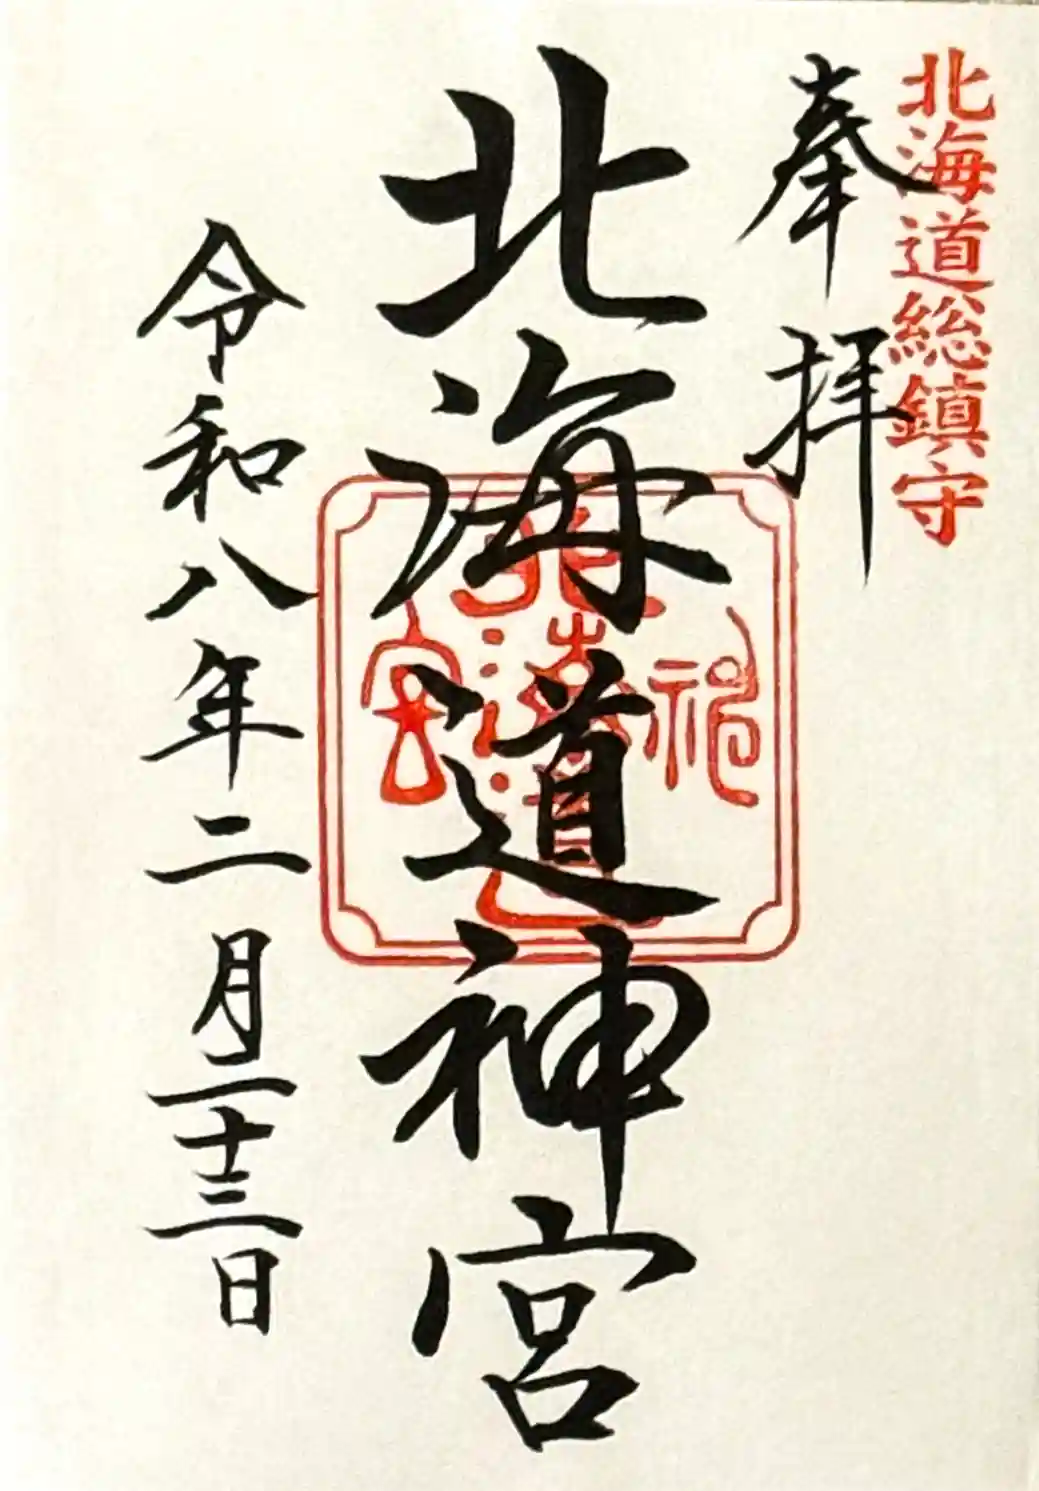 北海道総鎮守
奉拝
北海道神宮
北海道神宮
令和八年二月二十三日